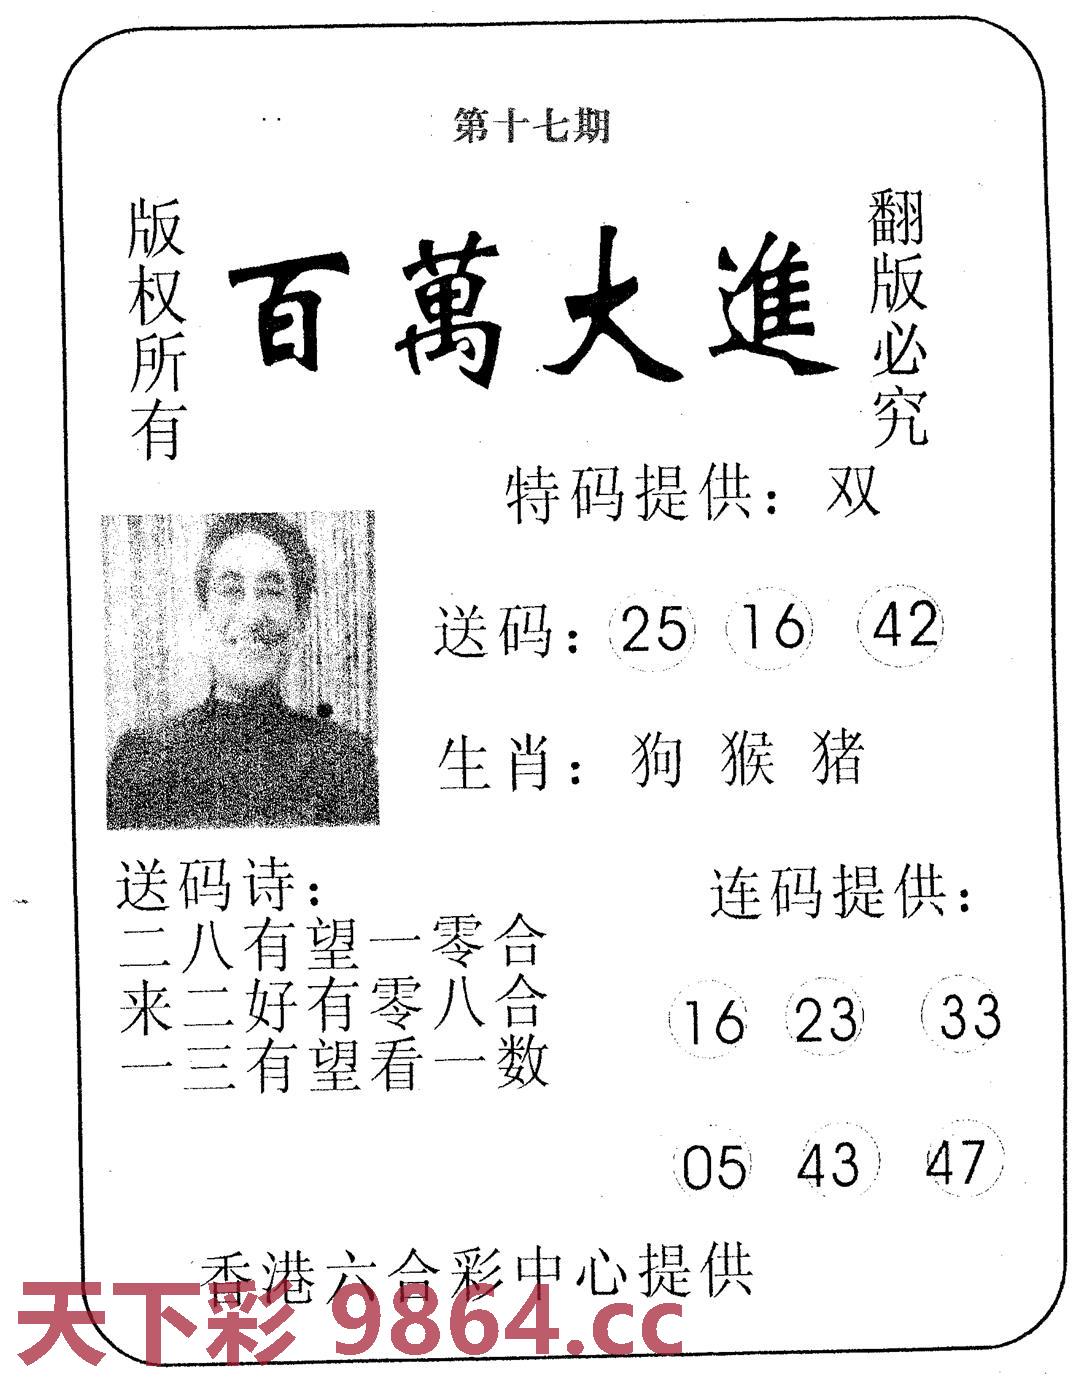 第十七期
版权所有
百萬大進
翻版必究
特码提供：双
送码：25 16 42
生肖：狗 猴 猪
送码诗：
二八有望一零合
来二好有零八合
一三有望看一数
连码提供：
16 23 33
05 43 47
香港六合彩中心提供
天下彩 9864.cc